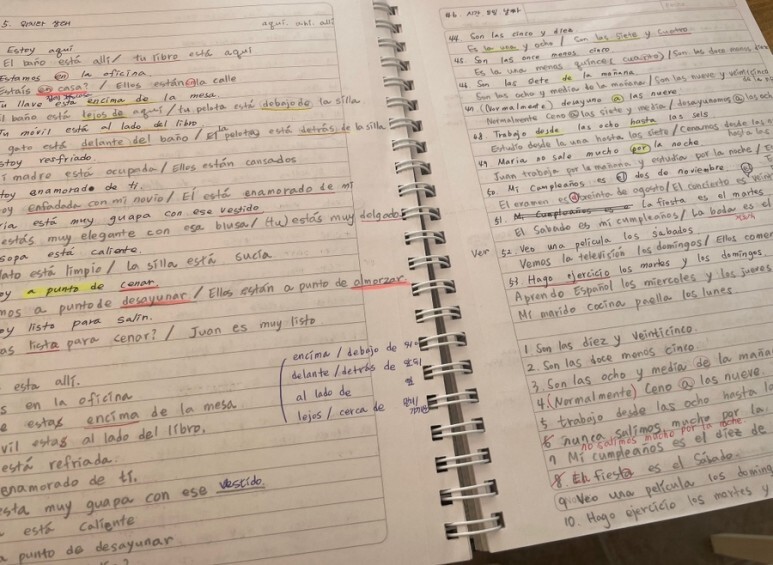 aquí. allí
Estoy aquí
El baño está allí / tu libro está aquí
Estamos en la oficina.
Estáis en casa? / Ellos están en la calle
Tu llave está encima de la mesa.
il baño está lejos de aquí / tu pelota está debajo de la silla
Tu móvil está al lado del libro.
gato está delante del baño / la pelota está detrás de la silla
stoy resfriado.
i madre está ocupada / Ellos están cansados
toy enamorado de ti.
oy enfadada con mi novio / Él está enamorado de mi
ria está muy guapa con ese vestido
estás muy elegante con esa blusa / (tu) estás muy delgado
sopa está caliente.
lato está limpio / La silla está sucia.
oy a punto de cenar
mos a punto de desayunar / Ellos están a punto de almorzar
oy listo para salir.
as lista para cenar? / Juan es muy listo
esta allí.
s en la oficina
estas encima de la mesa
vil estas al lado del libro.
está refriada.
enamorado de ti.
sta muy guapa con ese vestido.
está caliente
a punto de desayunar
encima / debajo de 위에
delante / detrás de 앞 뒤
al lado de 옆
lejos / cerca de
#6. 시간 요일 날짜
44. Son las cinco y diez
Es la una y ocho / Son las siete y cuatro
45 Son las once menos cinco
Es la una menos quince (cuarto) / Son las doce menos diez
46 Son las siete de la mañana
Son las ocho y media de la mañana / Son las nueve y veinticinco de la
47. (Normalmente) desayuno a las nueve
Normalmente Ceno a las siete y media / desayunamos a las och
48. Trabajo desde las ocho hasta las seis
Estudio desde la una hasta las siete / Cenamos desde las
hasta las
49 María no sale mucho por la noche
Juan trabaja por la mañana y estudia por la noche /
50. Mi cumpleaños es el dos de noviembre
El examen es el treinta de agosto / El concierto es
51. Mi Cumpleaños es La fiesta es el martes
El Sábado es mi cumpleaños / La boda es el
Ver 52. Veo una película los sábados
Vemos la televisión los domingos / Ellos comen
53. Hago ejercicio los martes y los domingos
Aprendo Español los miércoles y los jueves
Mi marido cocina paella los lunes
1 Son las diez y veinticinco.
2. Son las doce menos cinco
3. Son las ocho y media de la mañan
4. (Normalmente) Ceno a las nueve
5 trabajo desde las ocho hasta la
6 nunca salimos mucho por la
no salimos mucho por la noche.
7 Mi cumpleaños es el diez de
8. La fiesta es el Sábado.
9. Veo una película los doming
10. Hago ejercicio los martes y